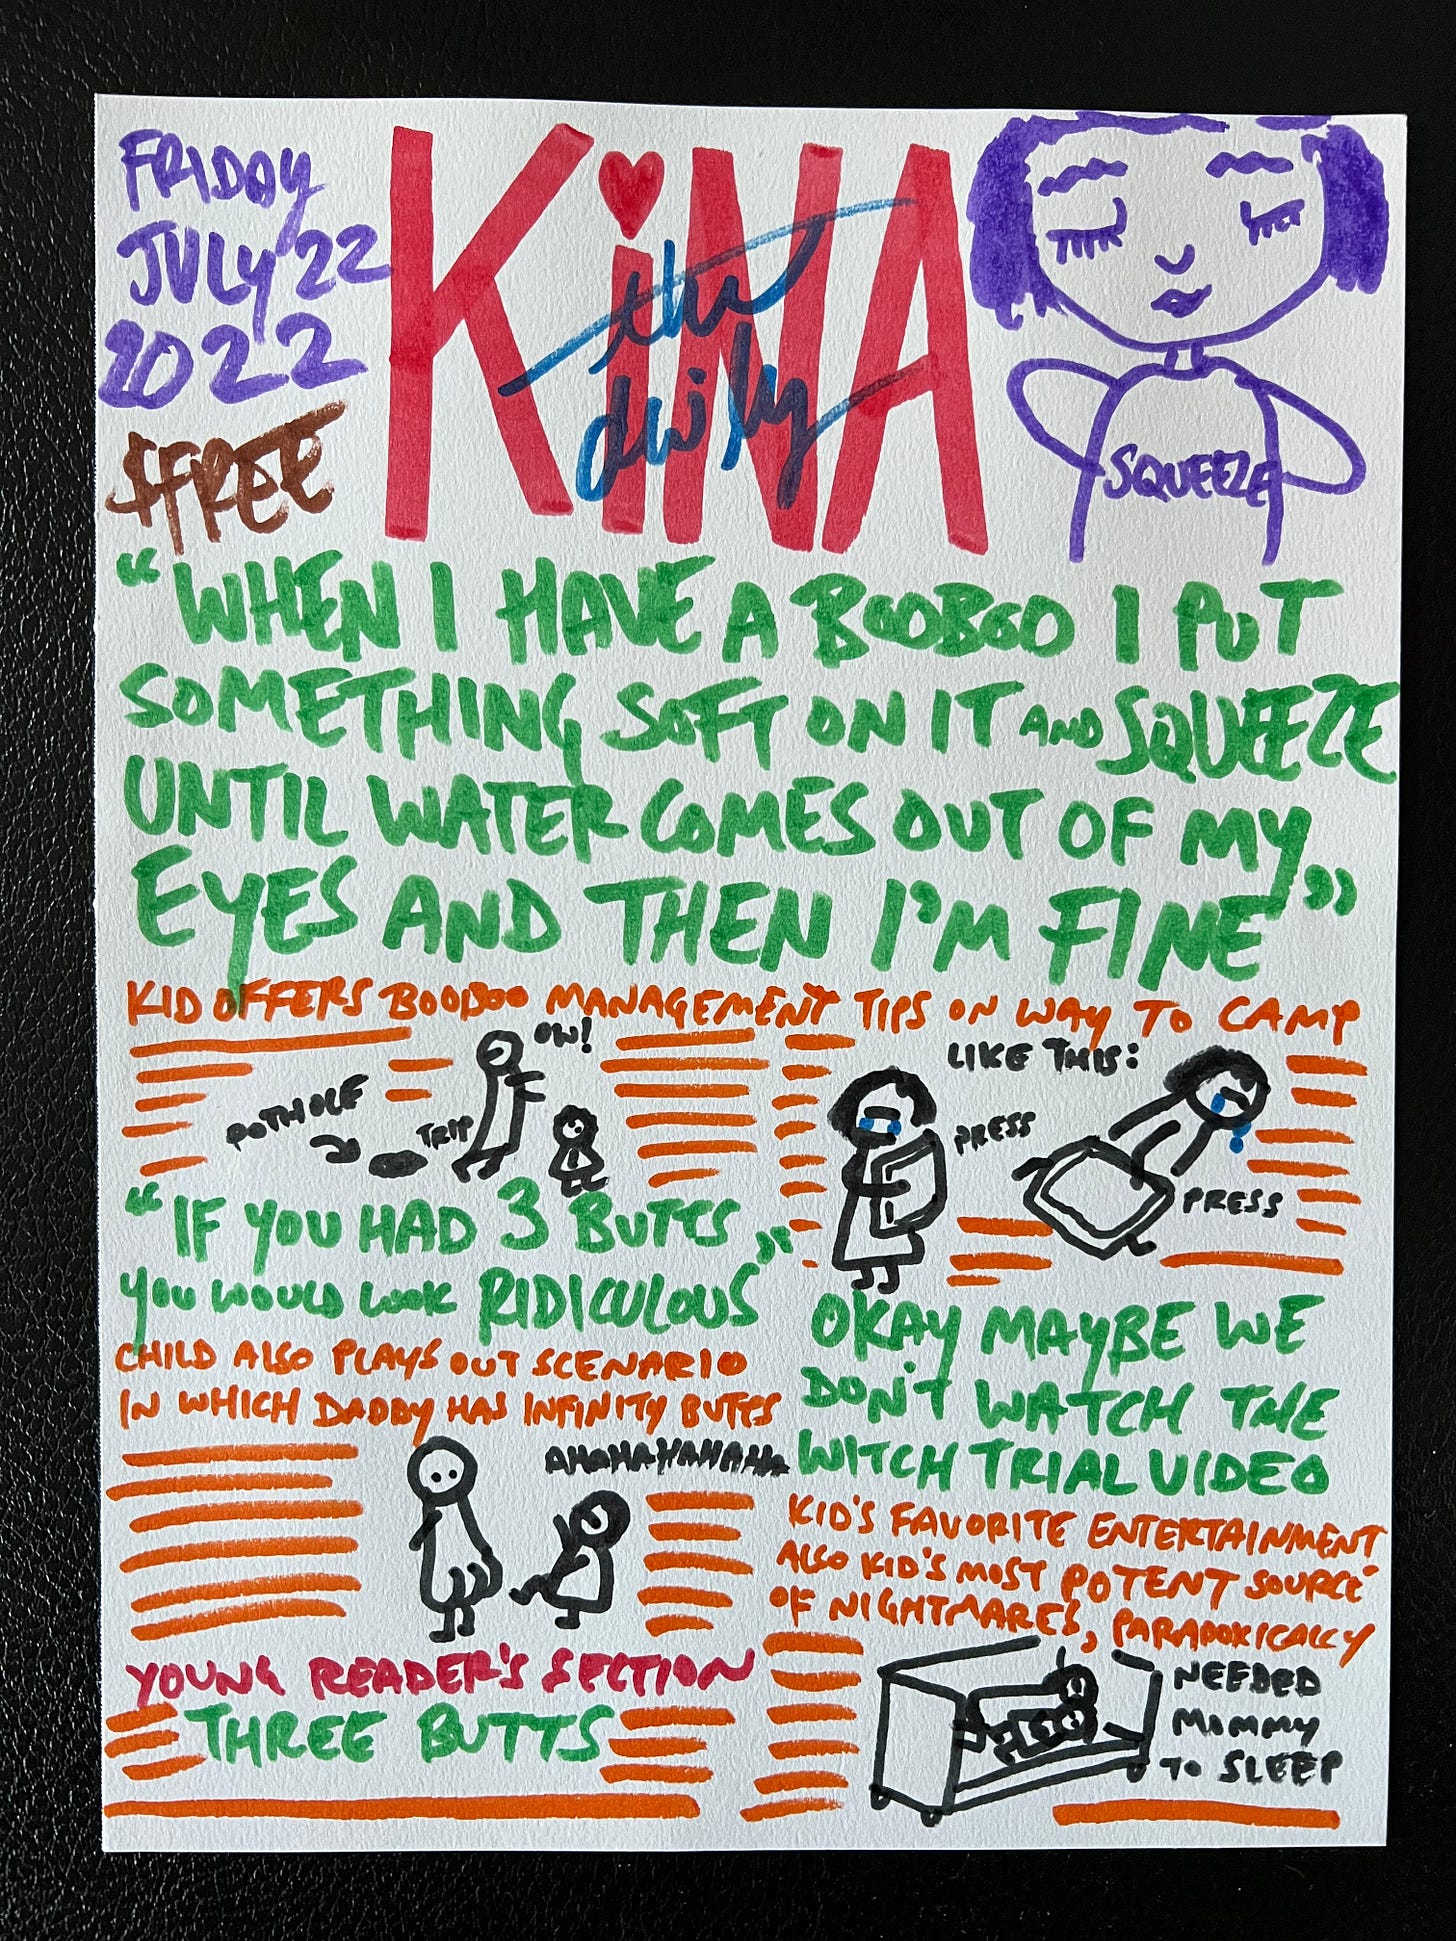 FRIDAY
JULY 22
2022
$FREE
the
daily
KiNA
SQUEEZE
"WHEN I HAVE A BOOBOO I PUT
SOMETHING SOFT ON IT AND SQUEEZE
UNTIL WATER COMES OUT OF MY
EYES AND THEN I'M FINE"
KID OFFERS BOOBOO MANAGEMENT TIPS ON WAY TO CAMP
OW!
POTHOLE
TRIP
LIKE THIS:
PRESS
PRESS
"IF YOU HAD 3 BUTTS
YOU WOULD LOOK RIDICULOUS"
CHILD ALSO PLAYS OUT SCENARIO
IN WHICH DADDY HAS INFINITY BUTTS
AHAHAHAHAHA
YOUNG READER'S SECTION
THREE BUTTS
OKAY MAYBE WE
DON'T WATCH THE
WITCH TRIAL VIDEO
KID'S FAVORITE ENTERTAINMENT
ALSO KID'S MOST POTENT SOURCE
OF NIGHTMARES, PARADOXICALLY
NEEDED
MOMMY
TO SLEEP